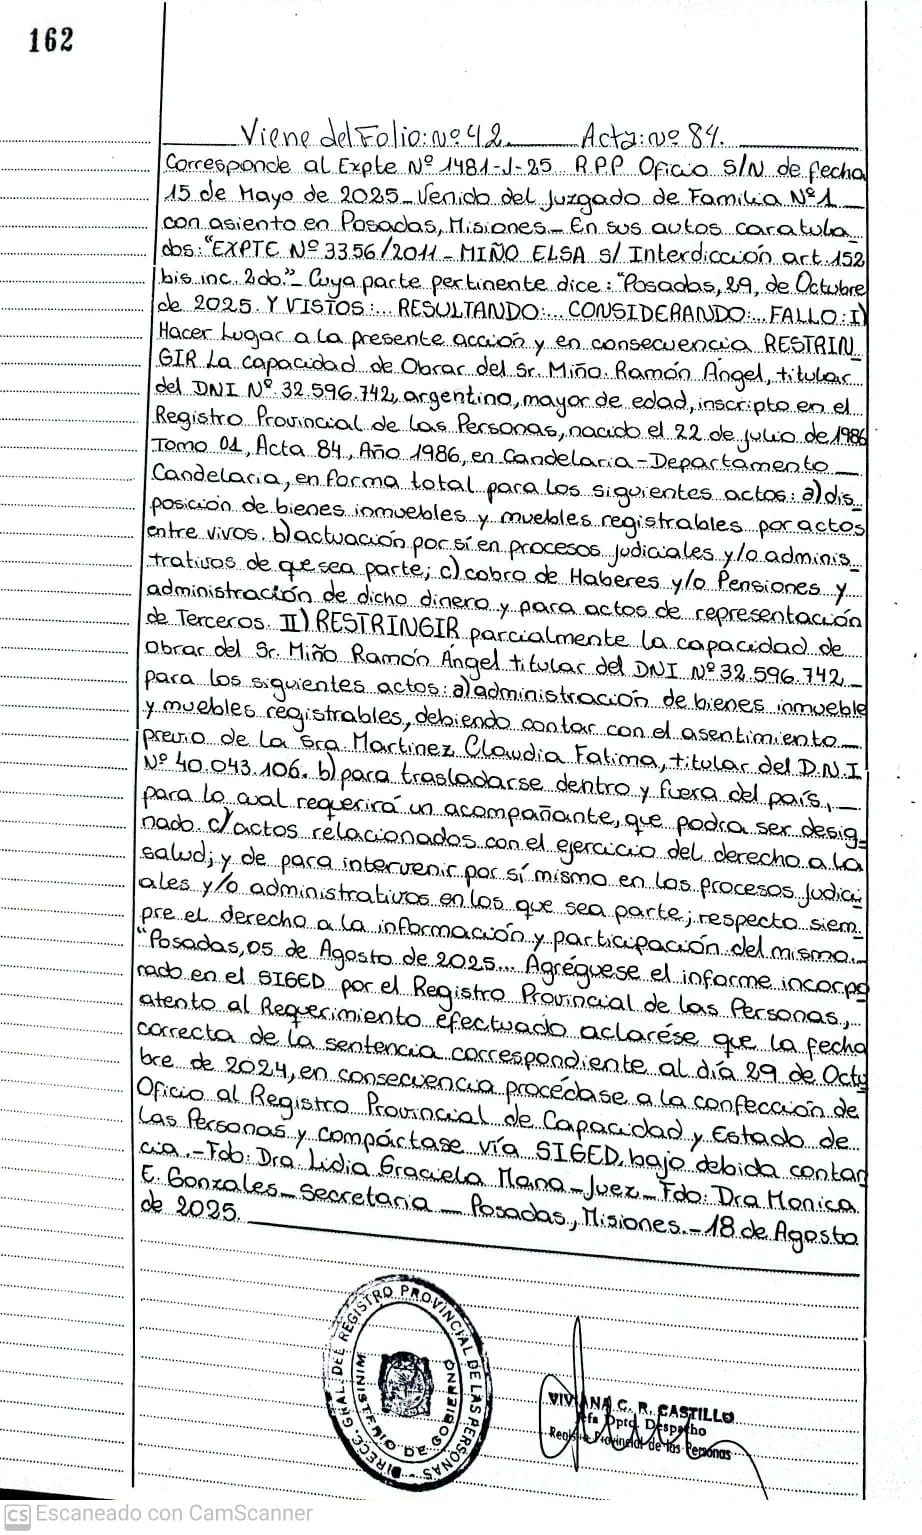 162
Viene del Folio: Nº 42. Acta: Nº 84.
Corresponde al Expte Nº 1481-J-25 R.P.P Oficio S/N de fecha
15 de Mayo de 2025_ Venido del Juzgado de Familia Nº 1
con asiento en Posadas, Misiones_ En sus autos caratula
dos: "EXPTE Nº 3356/2011_ MIÑO ELSA s/ Interdicción art. 152
bis inc. 2do."_ Cuya parte pertinente dice: "Posadas, 29, de Octubre
de 2025. Y VISTOS:... RESULTANDO:... CONSIDERANDO:... FALLO: I)
Hacer Lugar a la presente acción y en consecuencia RESTRIN_
GIR La capacidad de Obrar del Sr. Miño. Ramón Ángel, titular
del DNI Nº. 32.596.742, argentino, mayor de edad, inscripto en el
Registro Provincial de Las Personas, nacido el 22 de julio de 1986
Tomo 01, Acta 84, Año 1986, en Candelaria-Departamento
Candelaria, en forma total para los siguientes actos: a) dis_
posición de bienes inmuebles y muebles registrables por actos
entre vivos. b) actuación por sí en procesos judiciales y/o adminis_
trativos de que sea parte; c) cobro de Haberes y/o Pensiones y
administración de dicho dinero y para actos de representación
de Terceros. II) RESTRINGIR parcialmente la capacidad de
Obrar del Sr. Miño Ramón Ángel titular del DNI Nº 32.596.742_
para los siguientes actos: a) administración de bienes inmueble
y muebles registrables, debiendo contar con el asentimiento
previo de la Sra. Martinez Claudia Fatima, titular del D.N.I
Nº 40.043.106. b) para trasladarse dentro y fuera del país,_
para lo cual requerirá un acompañante, que podra ser desig_
nado c/actos relacionados con el ejercicio del derecho a la
salud; y de para intervenir por sí mismo en los procesos Judici
ales y/o administrativos en los que sea parte; respecto siem
pre el derecho a la información y participación del mismo._
"Posadas, 05 de Agosto de 2025... Agréguese el informe incorpo
rado en el SIGED por el Registro Provincial de las Personas,_
atento al Requerimiento efectuado aclarése que la fecha
correcta de la sentencia correspondiente al día 29 de Octu
bre de 2024, en consecuencia procédase a la confección de
Oficio al Registro Provincial de Capacidad y Estado de
Las Personas y compáctase vía SIGED, bajo debida contan
cia.-Fdo: Dra. Lidia Graciela Mana-Juez_Fdo: Dra Monica
E. Gonzales_Secretaria_ Posadas, Misiones.-18 de Agosto
de 2025.
DIRECC. GRAL. DEL REGISTRO PROVINCIAL DE LAS PERSONAS
MINISTERIO DE GOBIERNO
VIVIANA C. R. CASTILLO
Jefa Dpto. Despacho
Registro Provincial de las Personas
CS Escaneado con CamScanner